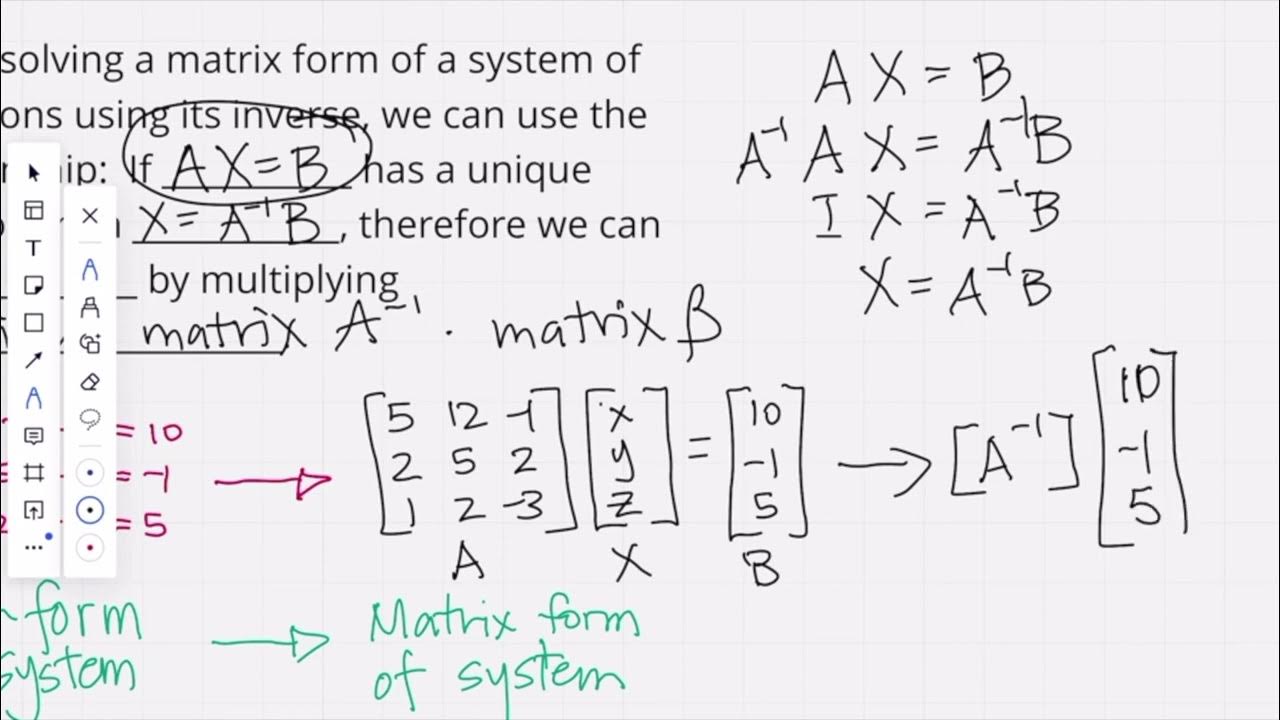 solving a matrix form of a system of
ons using its inverse, we can use the
ip: If AX=B has a unique
X = A⁻¹B, therefore we can
by multiplying
matrix A⁻¹ · matrix B
A X = B
A⁻¹ A X = A⁻¹B
I X = A⁻¹B
X = A⁻¹B
= 10
= -1
= 5
5 12 -1
2 5 2
1 2 -3
A
x
y
z
X
=
10
-1
5
B
[A⁻¹]
10
-1
5
form
system
Matrix form
of system
T